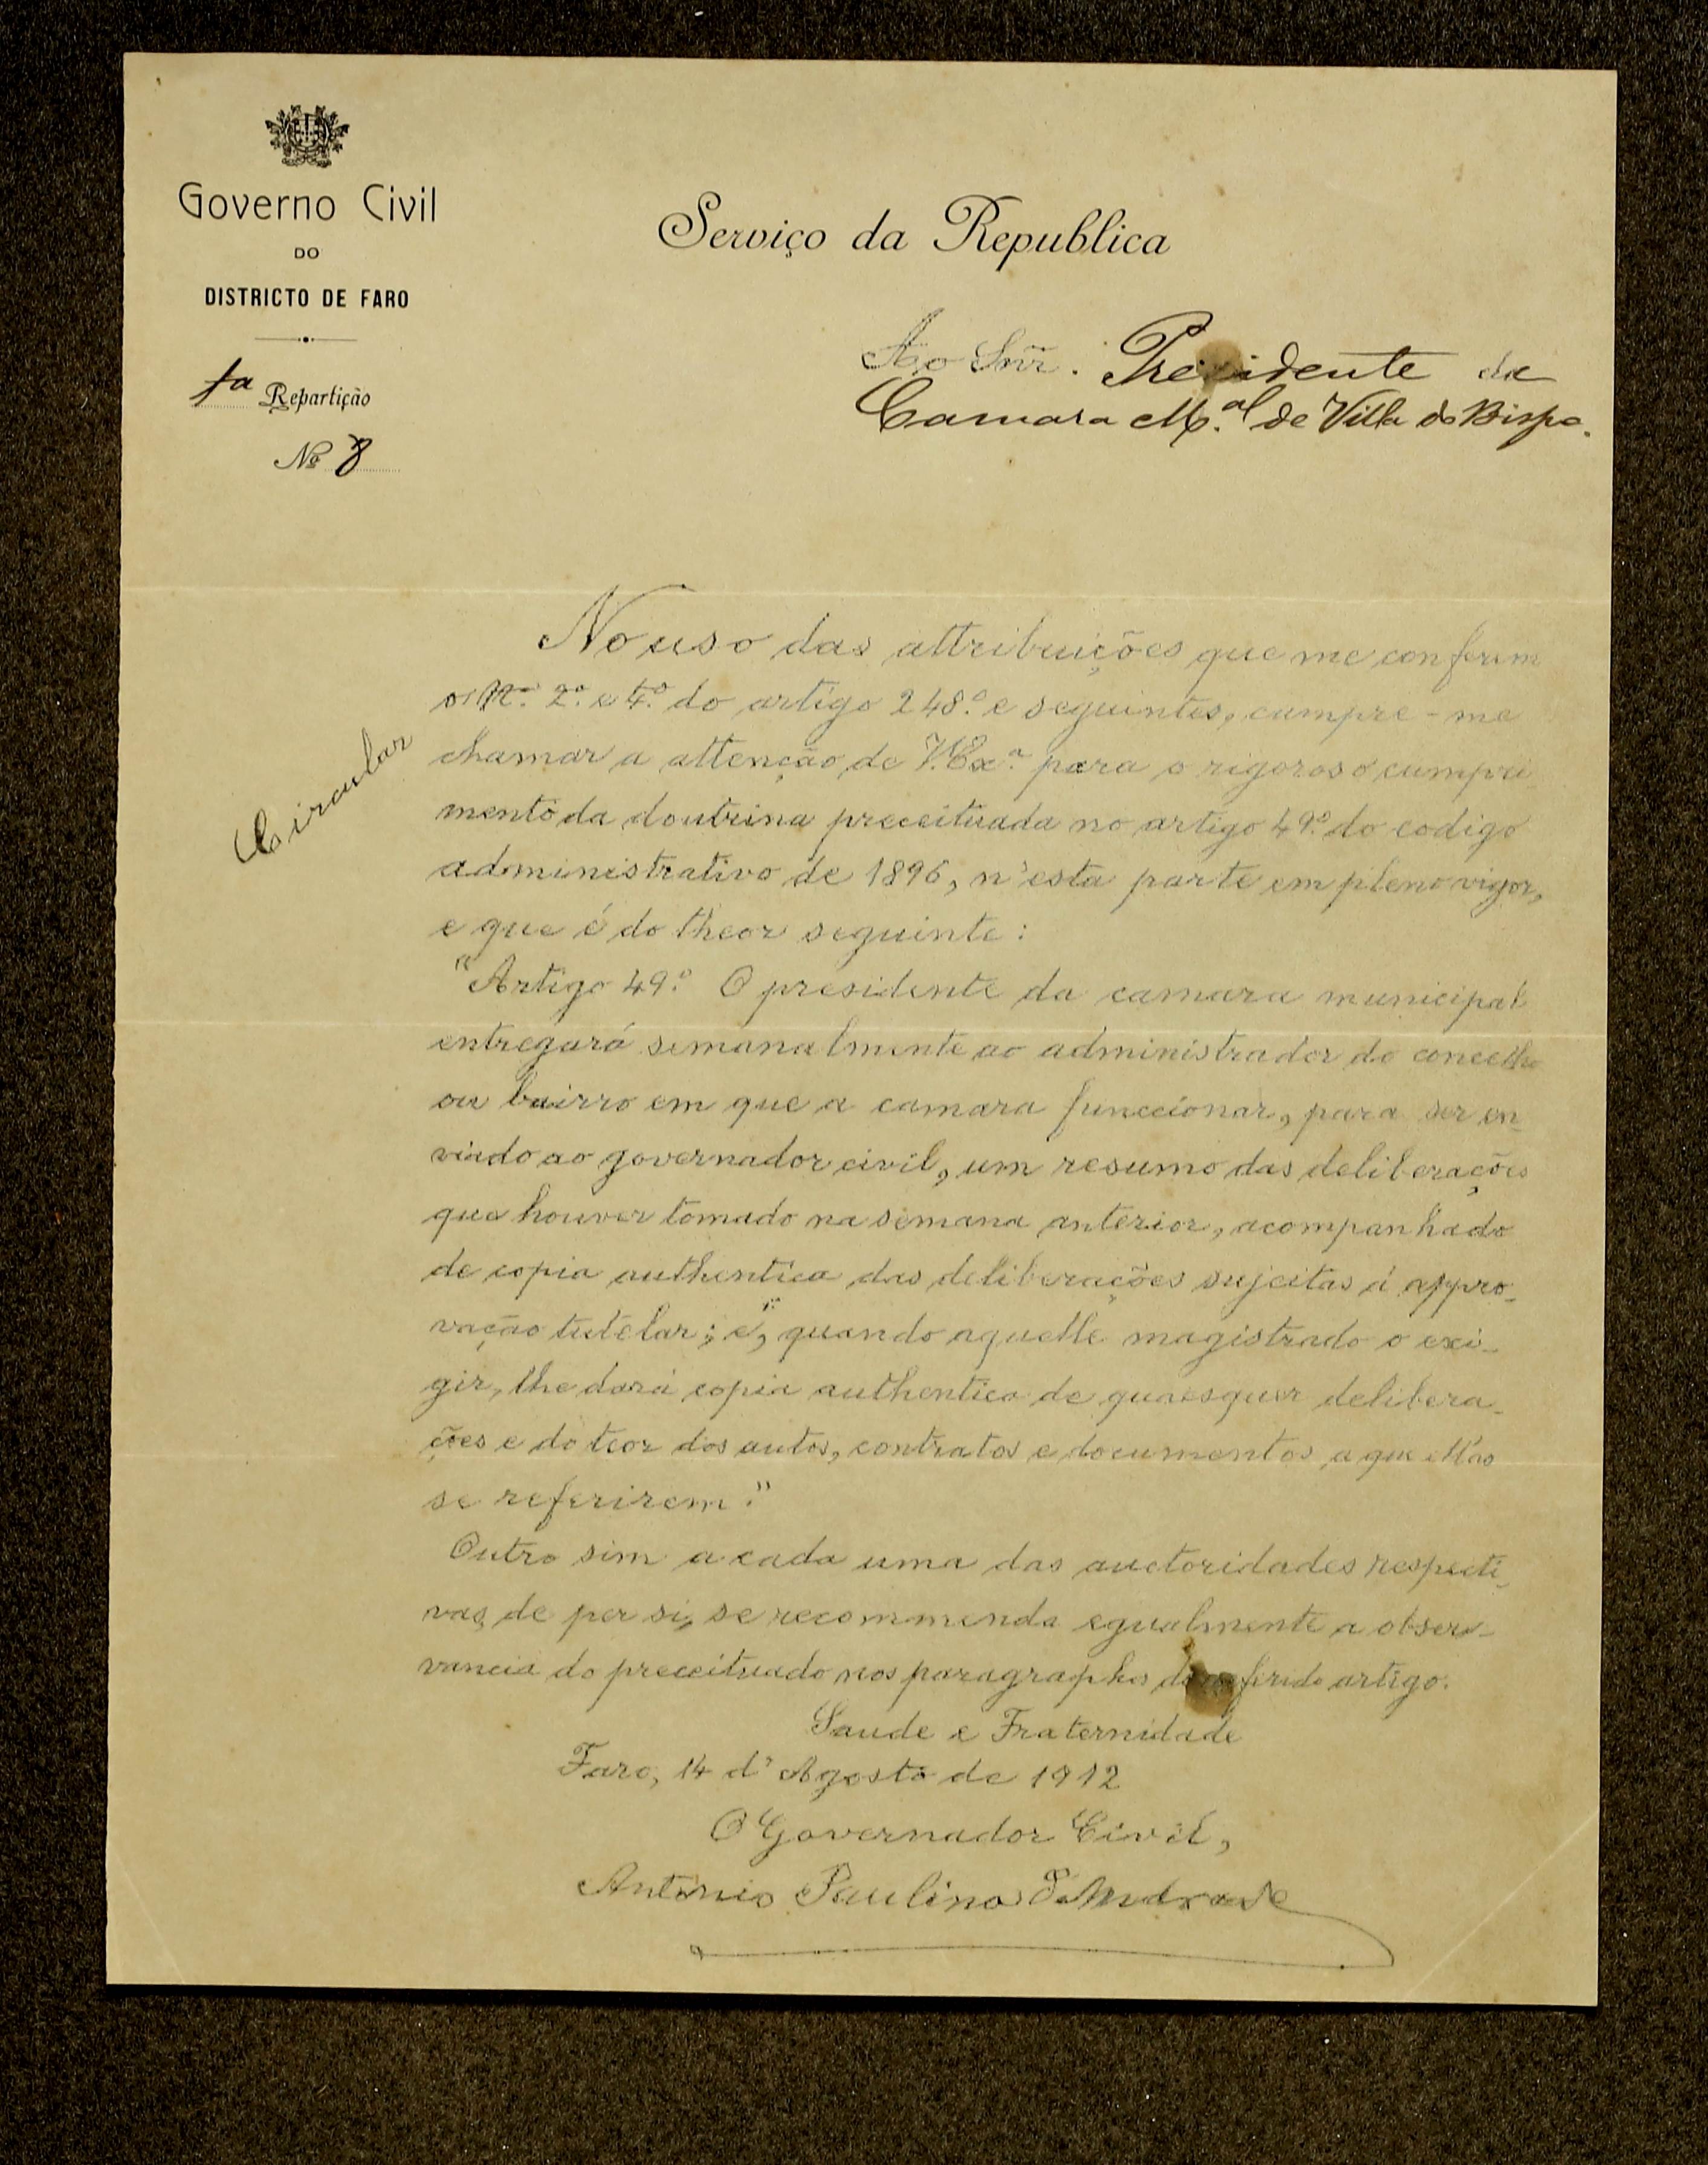 Governo Civil
DO
DISTRICTO DE FARO
1ª Repartição
Nº 8
Serviço da Republica
Ao Snr. Presidente da
Camara M.al de Villa do Bispo.
Circular
No uso das attribuições que me conferem
os Nos. 2º. e 4º. do artigo 248.º e seguintes, cumpre-me
chamar a attenção de V. Ex.ª para o rigoroso cumpri
mento da doutrina preceituada no artigo 49.º do codigo
administrativo de 1896, n'esta parte em pleno vigor,
e que é do theor seguinte:
"Artigo 49.º O presidente da camara municipal
entregará semanalmente ao administrador do concelho
ou bairro em que a camara funccionar, para ser en-
viado ao governador civil, um resumo das deliberações
que houver tomado na semana anterior, acompanhado
de copia authentica das deliberações sujeitas á appro-
vação tutélar; e, quando aquelle magistrado o exi-
gir, lhe dará copia authentica de quaesquer delibera-
ções e do teor dos autos, contratos e documentos a que ellas
se referirem."
Outro sim a cada uma das auctoridades respecti-
vas, de per si, se recommenda egualmente a obser-
vancia do preceituado nos paragraphos do referido artigo.
Saude e Fraternidade
Faro, 14 d'Agosto de 1912
O Governador Civil,
Antonio Paulino d'Andrade